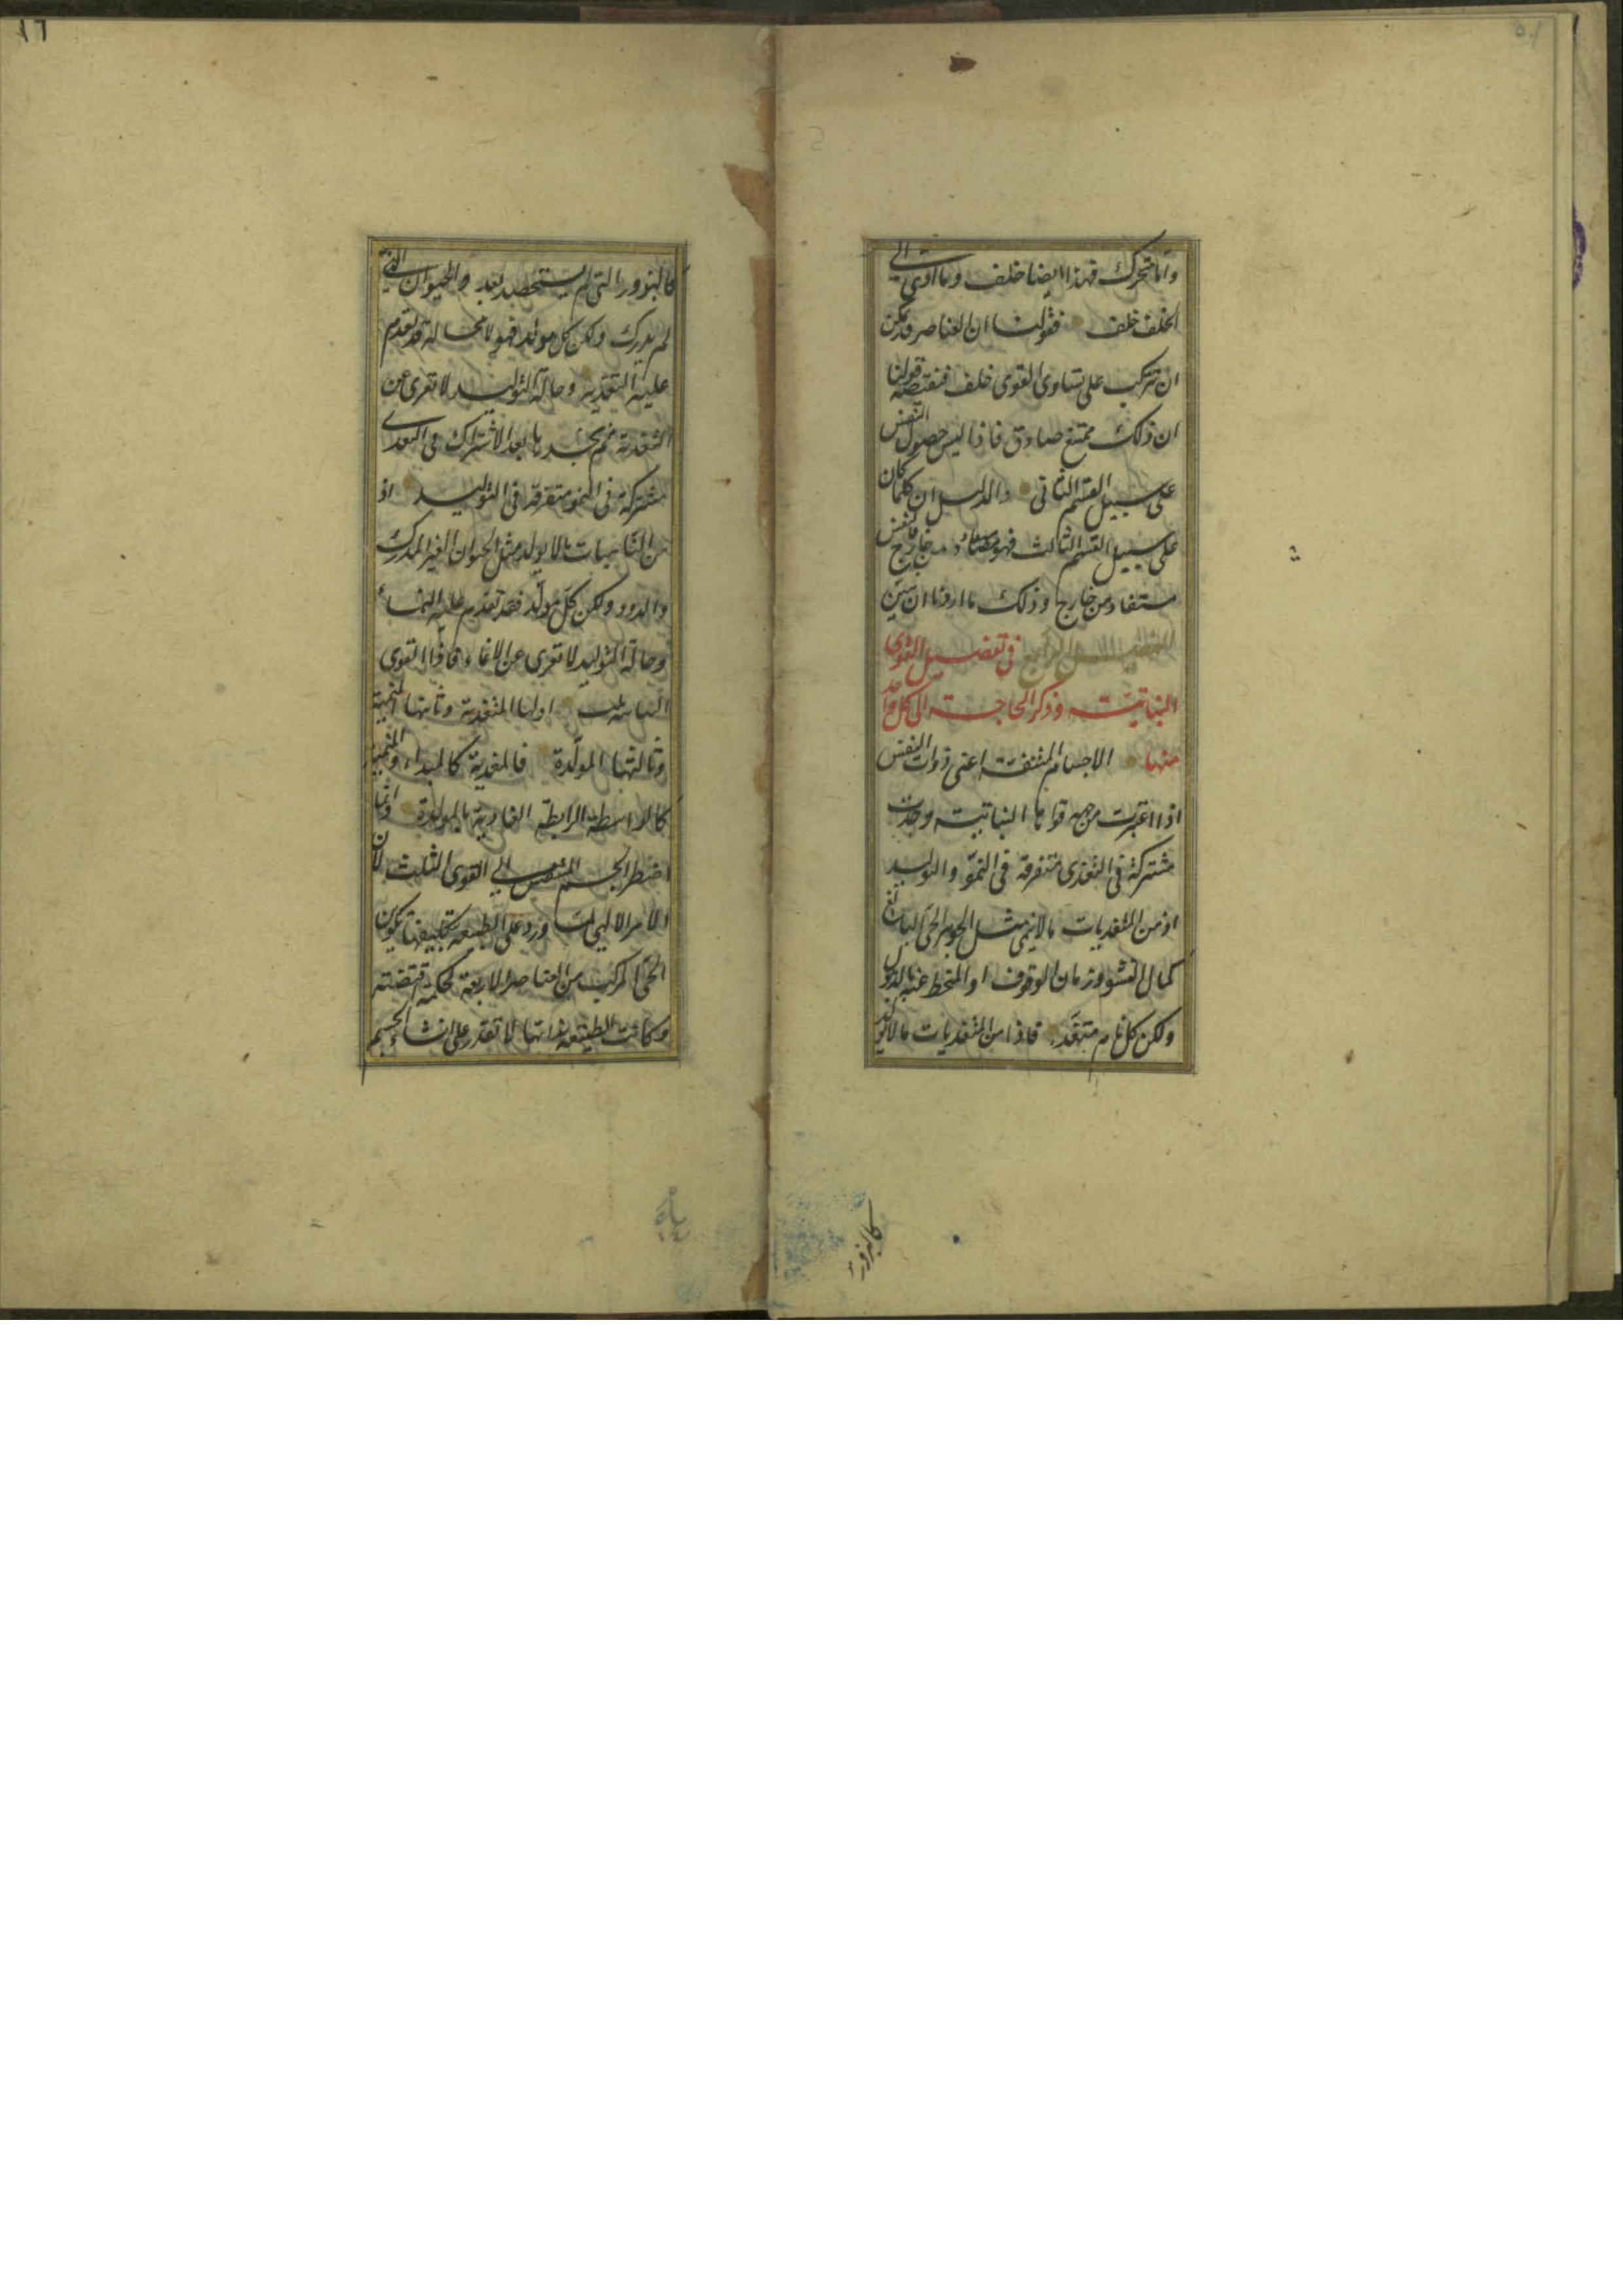 واما متحرك فهذا ايضا خلف وما ادى الى
الخلف خلف فقولنا ان العناصر قد يمكن
ان تتركب على تساوى القوى خلف فنقيضه قولنا
ان ذلك ممتنع صادق فاذا ليس حصول النفس
على سبيل القسم الثانى والدليل ان كلما كان
على سبيل القسم الثالث فهو من خارج فالنفس
مستفاد من خارج وذلك ما اردنا ان نبين
الفصل الرابع فى تفصيل القوى
النباتية وذكر الحاجة الى كل واحد
منها الاجسام المتنفسة اعنى ذوات النفس
اذا اعتبرت من جهة قواها النباتية وجدت
مشتركة فى التغذى متفرقة فى النمو والتوليد
اذ من المتغذيات ما لا ينمى مثل الجوهر الحى البالغ
كمال النشو وزمان الوقوف او المنحط عنه بالذبول
ولكن كل نام متغذ فاذا من المتغذيات ما لا يولد
كالبزور
١٦
كالبزور التى لم يستحصد بعد والحيوان التى
لم يدرك ولكن كل مولد فهو لا محالة قد تقدم
عليه التغذية وحالة التوليد لا تعرى عن
التغذية ثم نجدها بعد الاشتراك فى التغذى
مشتركة فى النمو متفرقة فى التوليد اذ
من الناميات ما لا يولد مثل الحيوان الغير المدرك
والدود ولكن كل مولد فقد تقدم عليه النماء
وحالة التوليد لا تعرى عن الانماء فاذا القوى
النباتية ثلث اولها المتغذية وثانيها المنمية
وثالثها المولدة فالمغذية كالمبداء والمنمية
كالواسطة الرابطة الغاوية بالمولدة وانما
اضطر الجسم المتنفس الى القوى الثلث لان
الامر الالهى لما ورد على الطبيعة بتكليفها تكوين
الحى المركب من العناصر الاربعة لحكمة اقتضته
وكانت الطبيعة بذاتها لا تقدر على انشاء الجسم